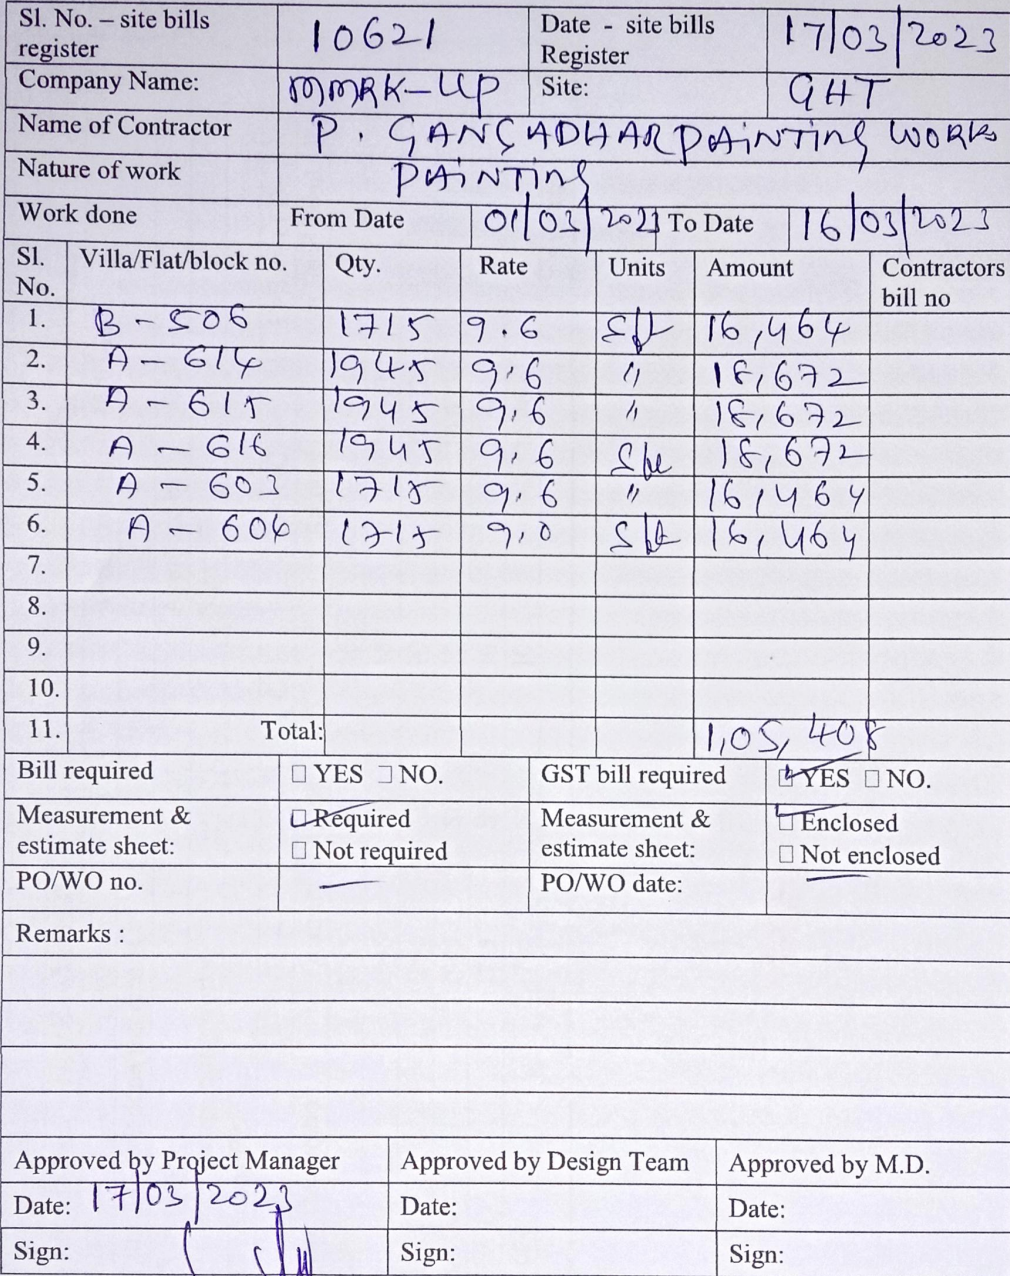 Sl. No. – site bills register 10621 Date - site bills Register 17/03/2023
Company Name: MMRK-UP Site: GHT
Name of Contractor P. GANGADHAR PAINTING WORK
Nature of work PAINTING
Work done From Date 01/03/2023 To Date 16/03/2023
Sl. No. Villa/Flat/block no. Qty. Rate Units Amount Contractors bill no
1. B - 506 1715 9.6 Sft 16,464
2. A - 614 1945 9.6 " 18,672
3. A - 615 1945 9.6 " 18,672
4. A - 616 1945 9.6 Sft 18,672
5. A - 603 1715 9.6 " 16,464
6. A 604 1715 9.6 Sft 16,464
7.
8.
9.
10.
11. Total: 1,05,408
Bill required □ YES □ NO. GST bill required □ YES □ NO.
Measurement & estimate sheet: □ Required □ Not required Measurement & estimate sheet: □ Enclosed □ Not enclosed
PO/WO no. — PO/WO date: —
Remarks :
Approved by Project Manager Approved by Design Team Approved by M.D.
Date: 17/03/2023 Date: Date:
Sign: Sign: Sign: